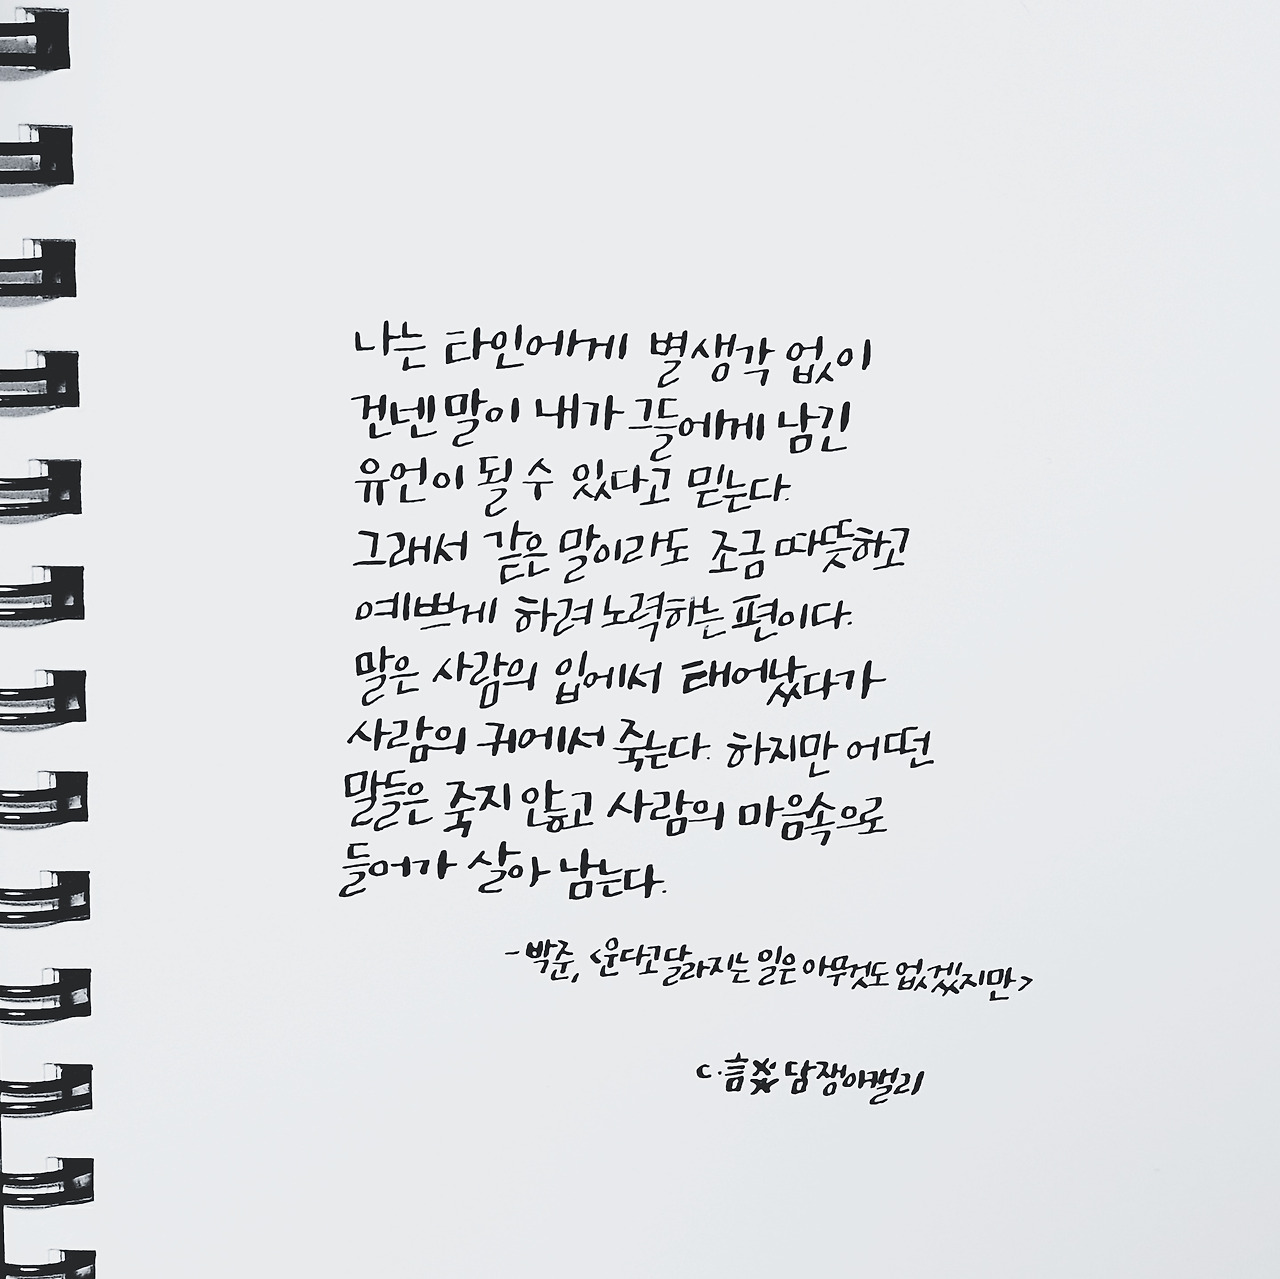 나는 타인에게 별생각 없이
건넨 말이 내가 그들에게 남긴
유언이 될 수 있다고 믿는다.
그래서 같은 말이라도 조금 따뜻하고
예쁘게 하려 노력하는 편이다.
말은 사람의 입에서 태어났다가
사람의 귀에서 죽는다. 하지만 어떤
말들은 죽지 않고 사람의 마음속으로
들어가 살아 남는다.
- 박준, <운다고 달라지는 일은 아무것도 없겠지만>
c. 言爻 담쟁이캘리